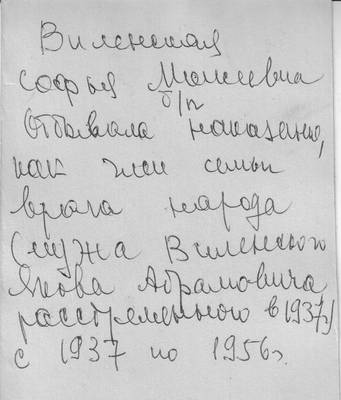 Виленская
Софья Моисеевна
б/п
Отбывала наказание,
как член семьи
врага народа
(мужа Виленского
Якова Абрамовича
расстрелянного в 1937г)
с 1937 по 1956г.